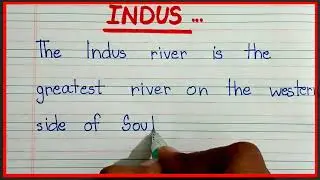 INDUS ...
The Indus river is the
greatest river on the western
side of Soul